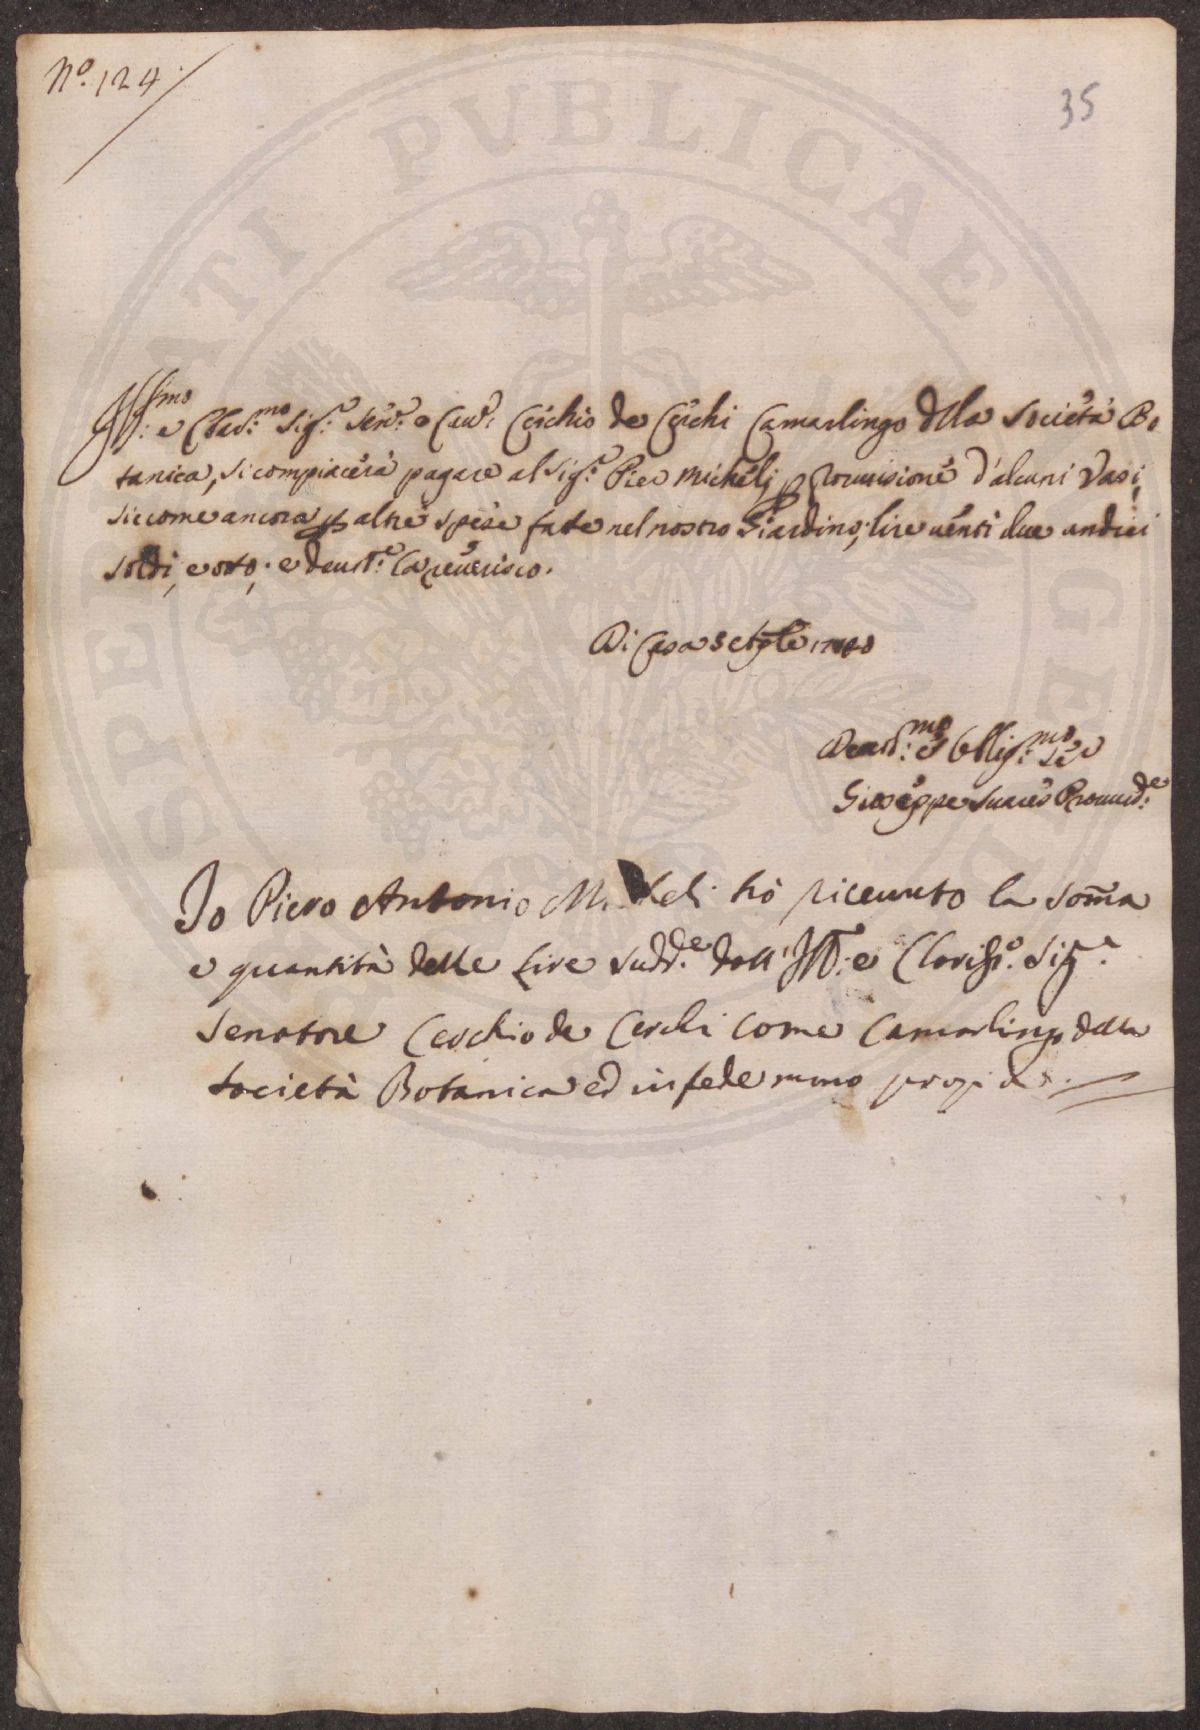 N.º 124
35
Ill.mo e Clar.mo Sig.r Sen.r e Cav.r Cerchio de Cerchi Camarlingo della Società Bo
tanica, si compiacerà pagare al Sig.r Pier Micheli p provisione d'alcuni Vasi,
siccome ancora p altre spese fate nel nostro Giardino, lire venti due undici
soldi, e otto, e devot.e la reverisco.
Di Casa 8
Devot.mo et Obblig.mo Se.r
Giuseppe Suares Proved.e
Io Piero Antonio Micheli hò ricevuto la somma
e quantità delle Lire sudd.e dall'Ill.o e Clariss.o Sig.r
Senatore Cerchio de Cerchi come Camarlingo della
Società Botanica ed in fede mano propria
SPE ATI PUBLICAE